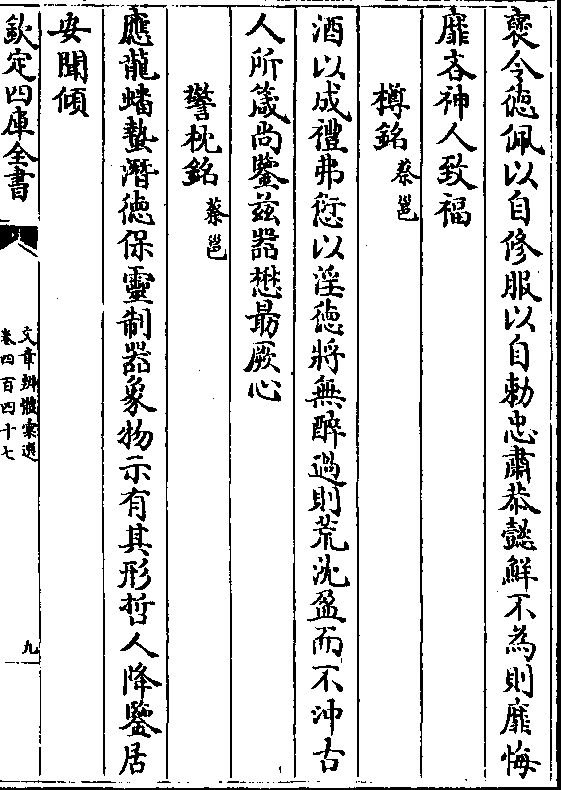 褒令徳佩以自修服以自勅忠肅恭懿鮮不為則靡悔
靡吝神人致福
樽銘 蔡邕
酒以成禮弗愆以淫徳將無醉過則荒沈盈而不沖古
人所箴尚鑒兹器懋朂厥心
警枕銘 蔡邕
應龍蟠蟄潛徳保靈制器象物示有其形哲人降鑒居
安聞傾
欽定四庫全書
文章辨體彙選
卷四百四十七
九